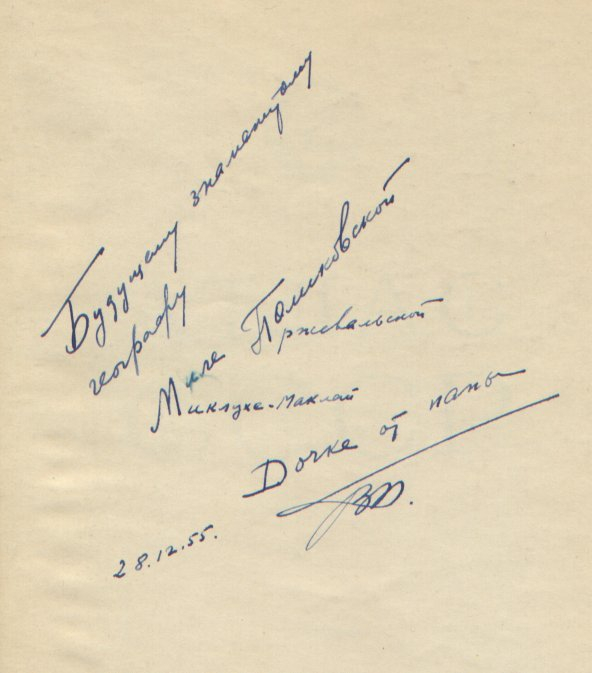 Будущему знаменитому
географу
Миле
ржевальской
Миклухе-Маклай
Дочке от папы
28.12.55.